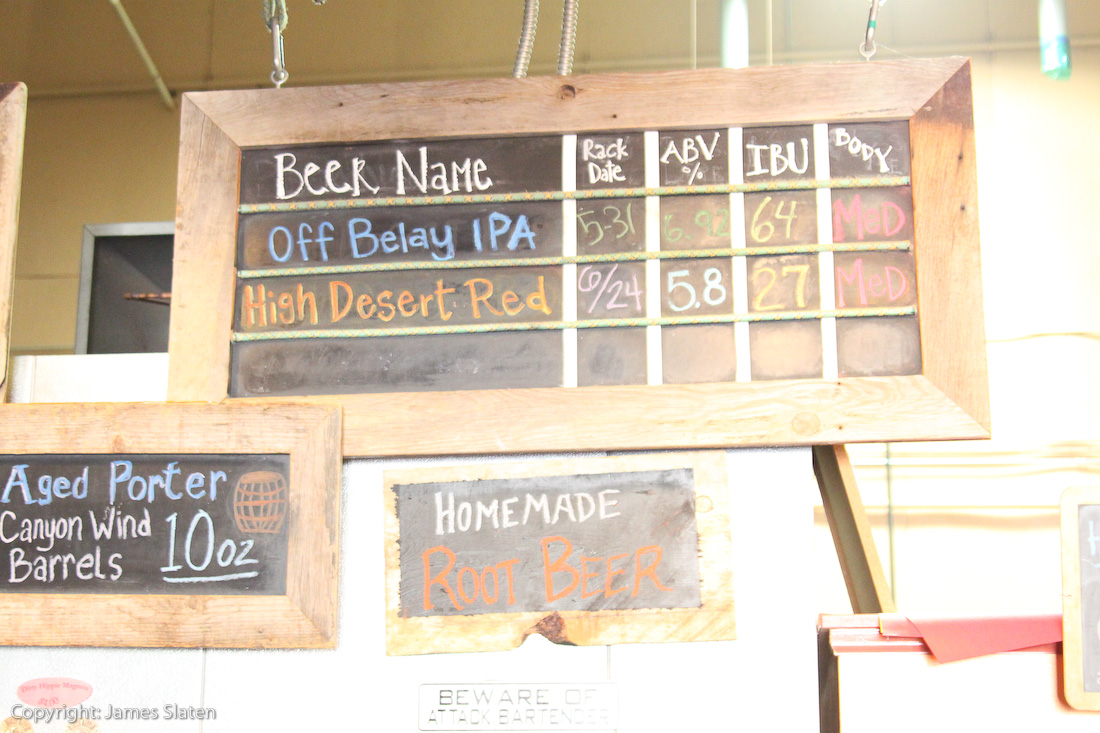 Beer Name Rack Date ABV % IBU Body
Off Belay IPA 5-31 6.92 64 MeD
High Desert Red 6/24 5.8 27 MeD
Aged Porter
Canyon Wind
Barrels 10oz
HOMEMADE
ROOT BEER
BEWARE OF
ATTACK BARTENDER
Copyright: James Slaten